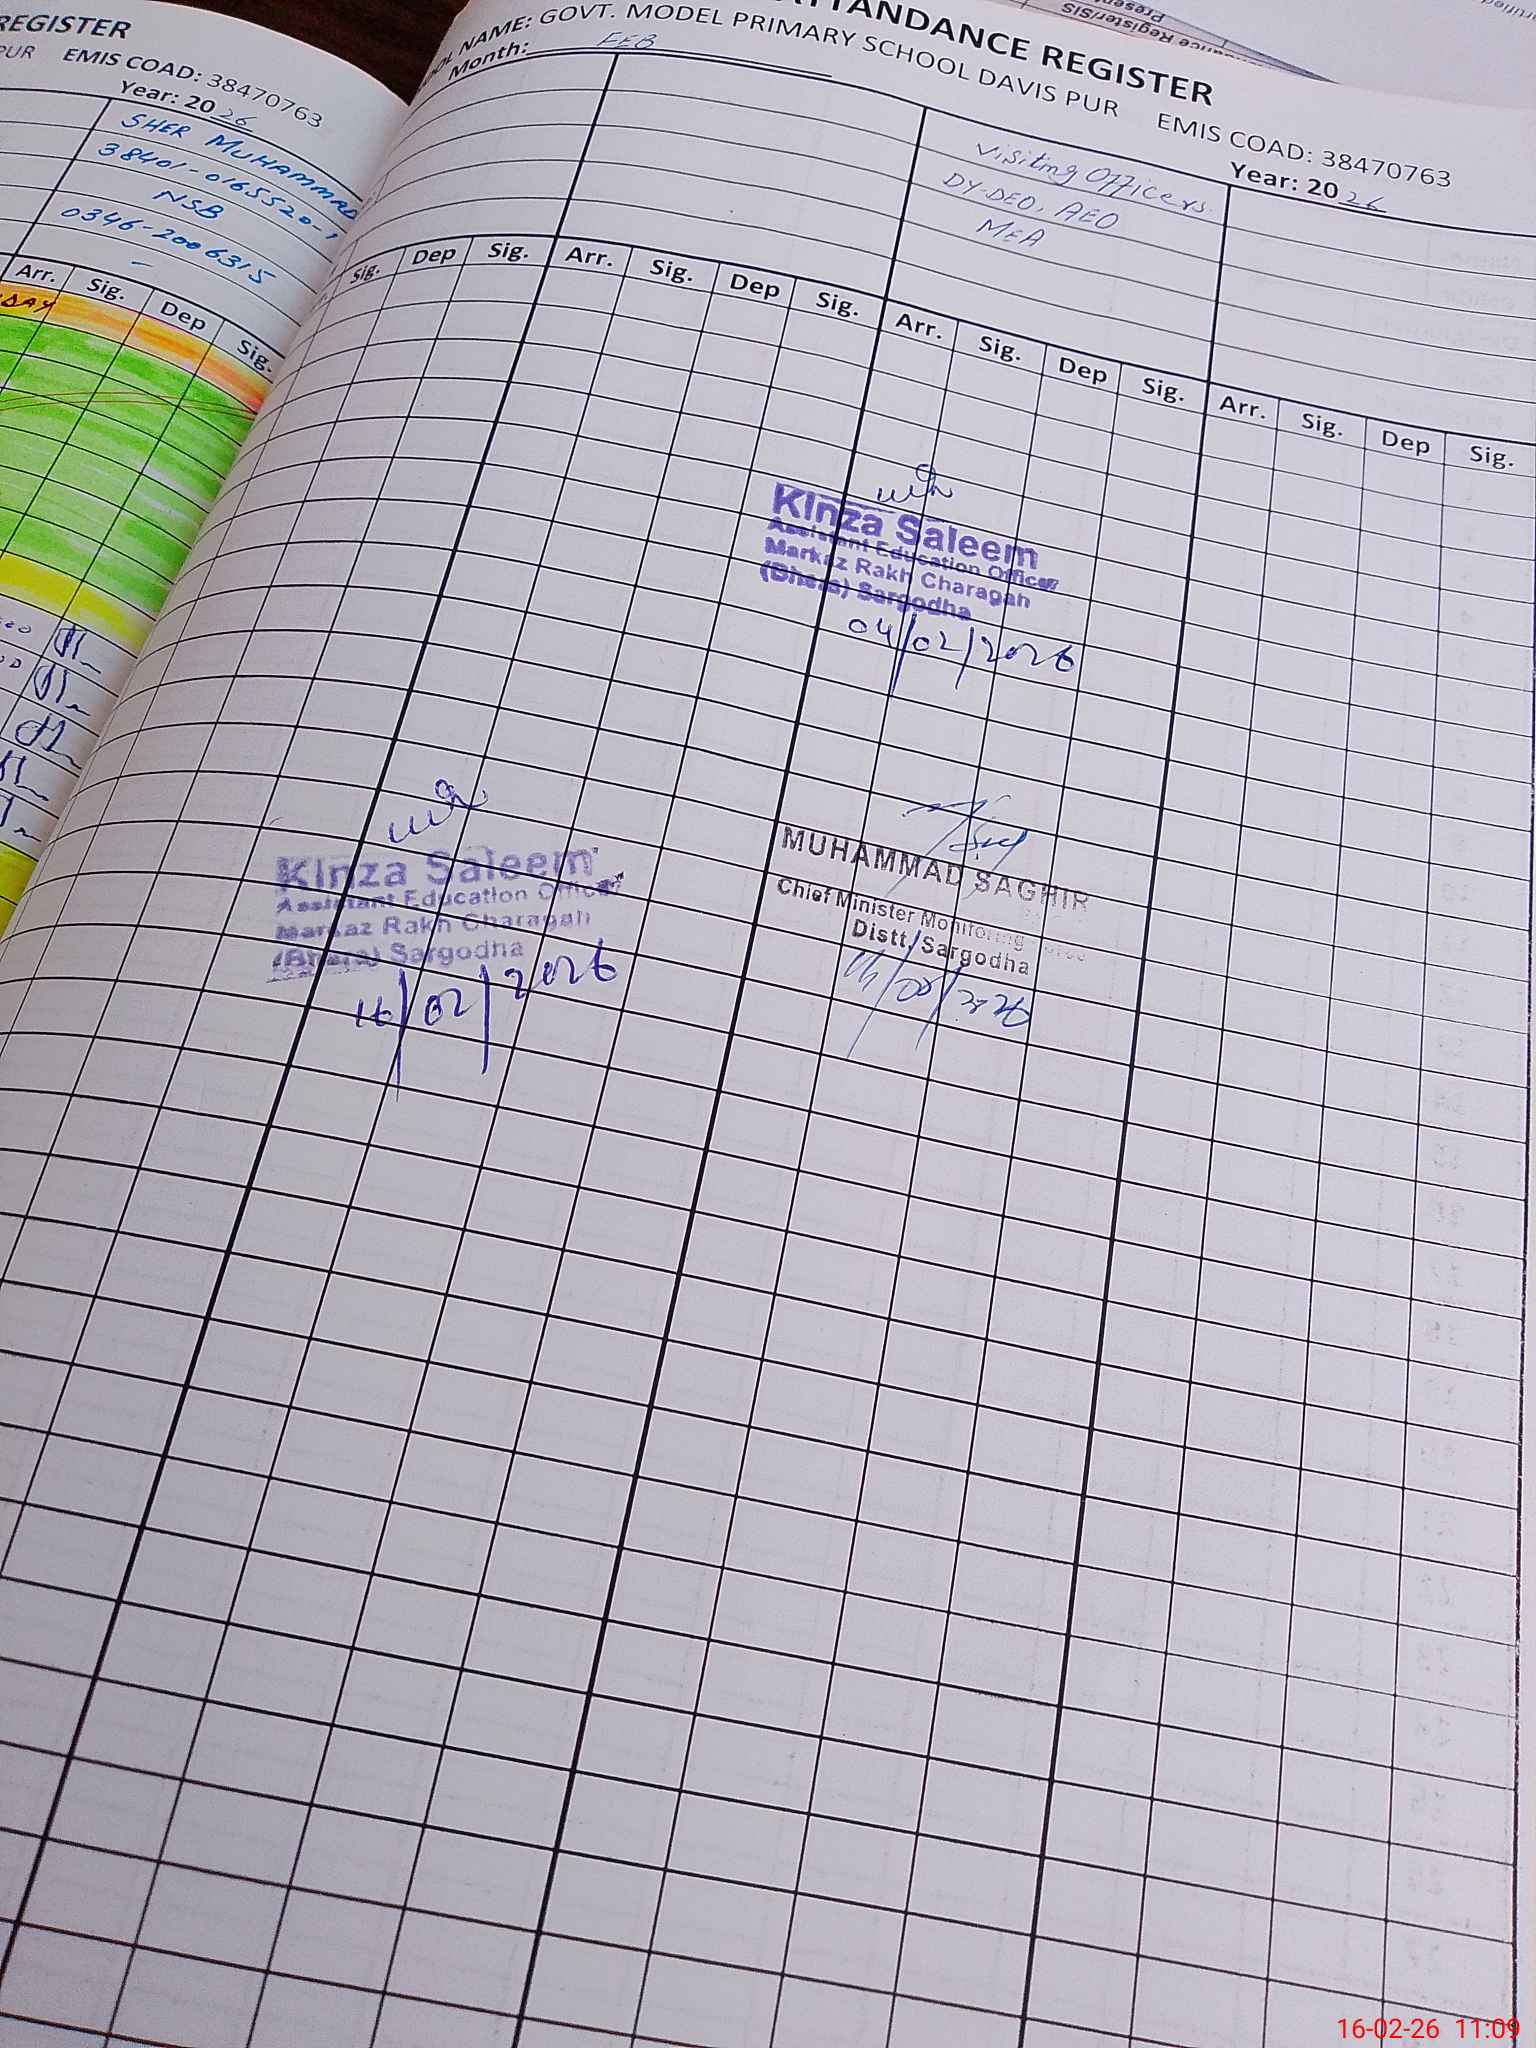 REGISTER
PUR EMIS COAD: 38470763
Year: 2026
SHER MUHAMMAD
38401-0165520-
NSB
0346-2006315
Arr. Sig. Dep Sig.
ATTANDANCE REGISTER
OOL NAME: GOVT. MODEL PRIMARY SCHOOL DAVIS PUR EMIS COAD: 38470763
Month: FEB Year: 2026
Visiting Officers.
DY-DEO, AEO
MEA
Sig. Dep Sig. Arr. Sig. Dep Sig. Arr. Sig. Dep Sig. Arr. Sig. Dep Sig.
Kinza Saleem
Assistant Education Officer
Markaz Rakh Charagah
(Bhera) Sargodha
04/02/2026
Kinza Saleem
Assistant Education Officer
Markaz Rakh Charagah
(Bhera) Sargodha
16/02/2026
MUHAMMAD SAGHIR
Chief Minister Monitoring Force
Distt. Sargodha
16-02-26 11:09